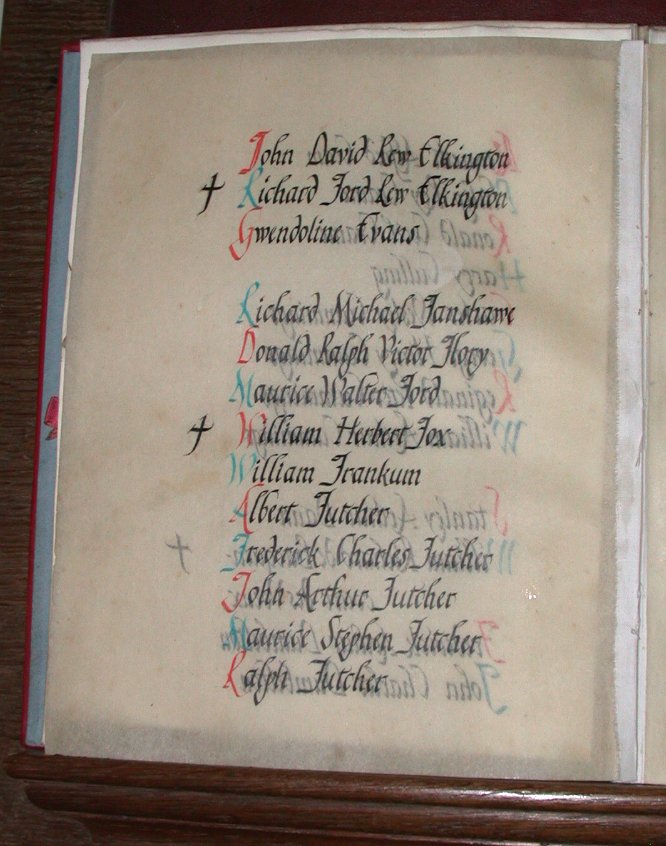 John David Rew Elkington
† Richard Ford Rew Elkington
Gwendoline Evans
Richard Michael Fanshawe
Donald Ralph Victor Flory
Maurice Walter Ford
† William Herbert Fox
William Frankum
Albert Futcher
Frederick Charles Futcher
John Arthur Futcher
Maurice Stephen Futcher
Ralph Futcher